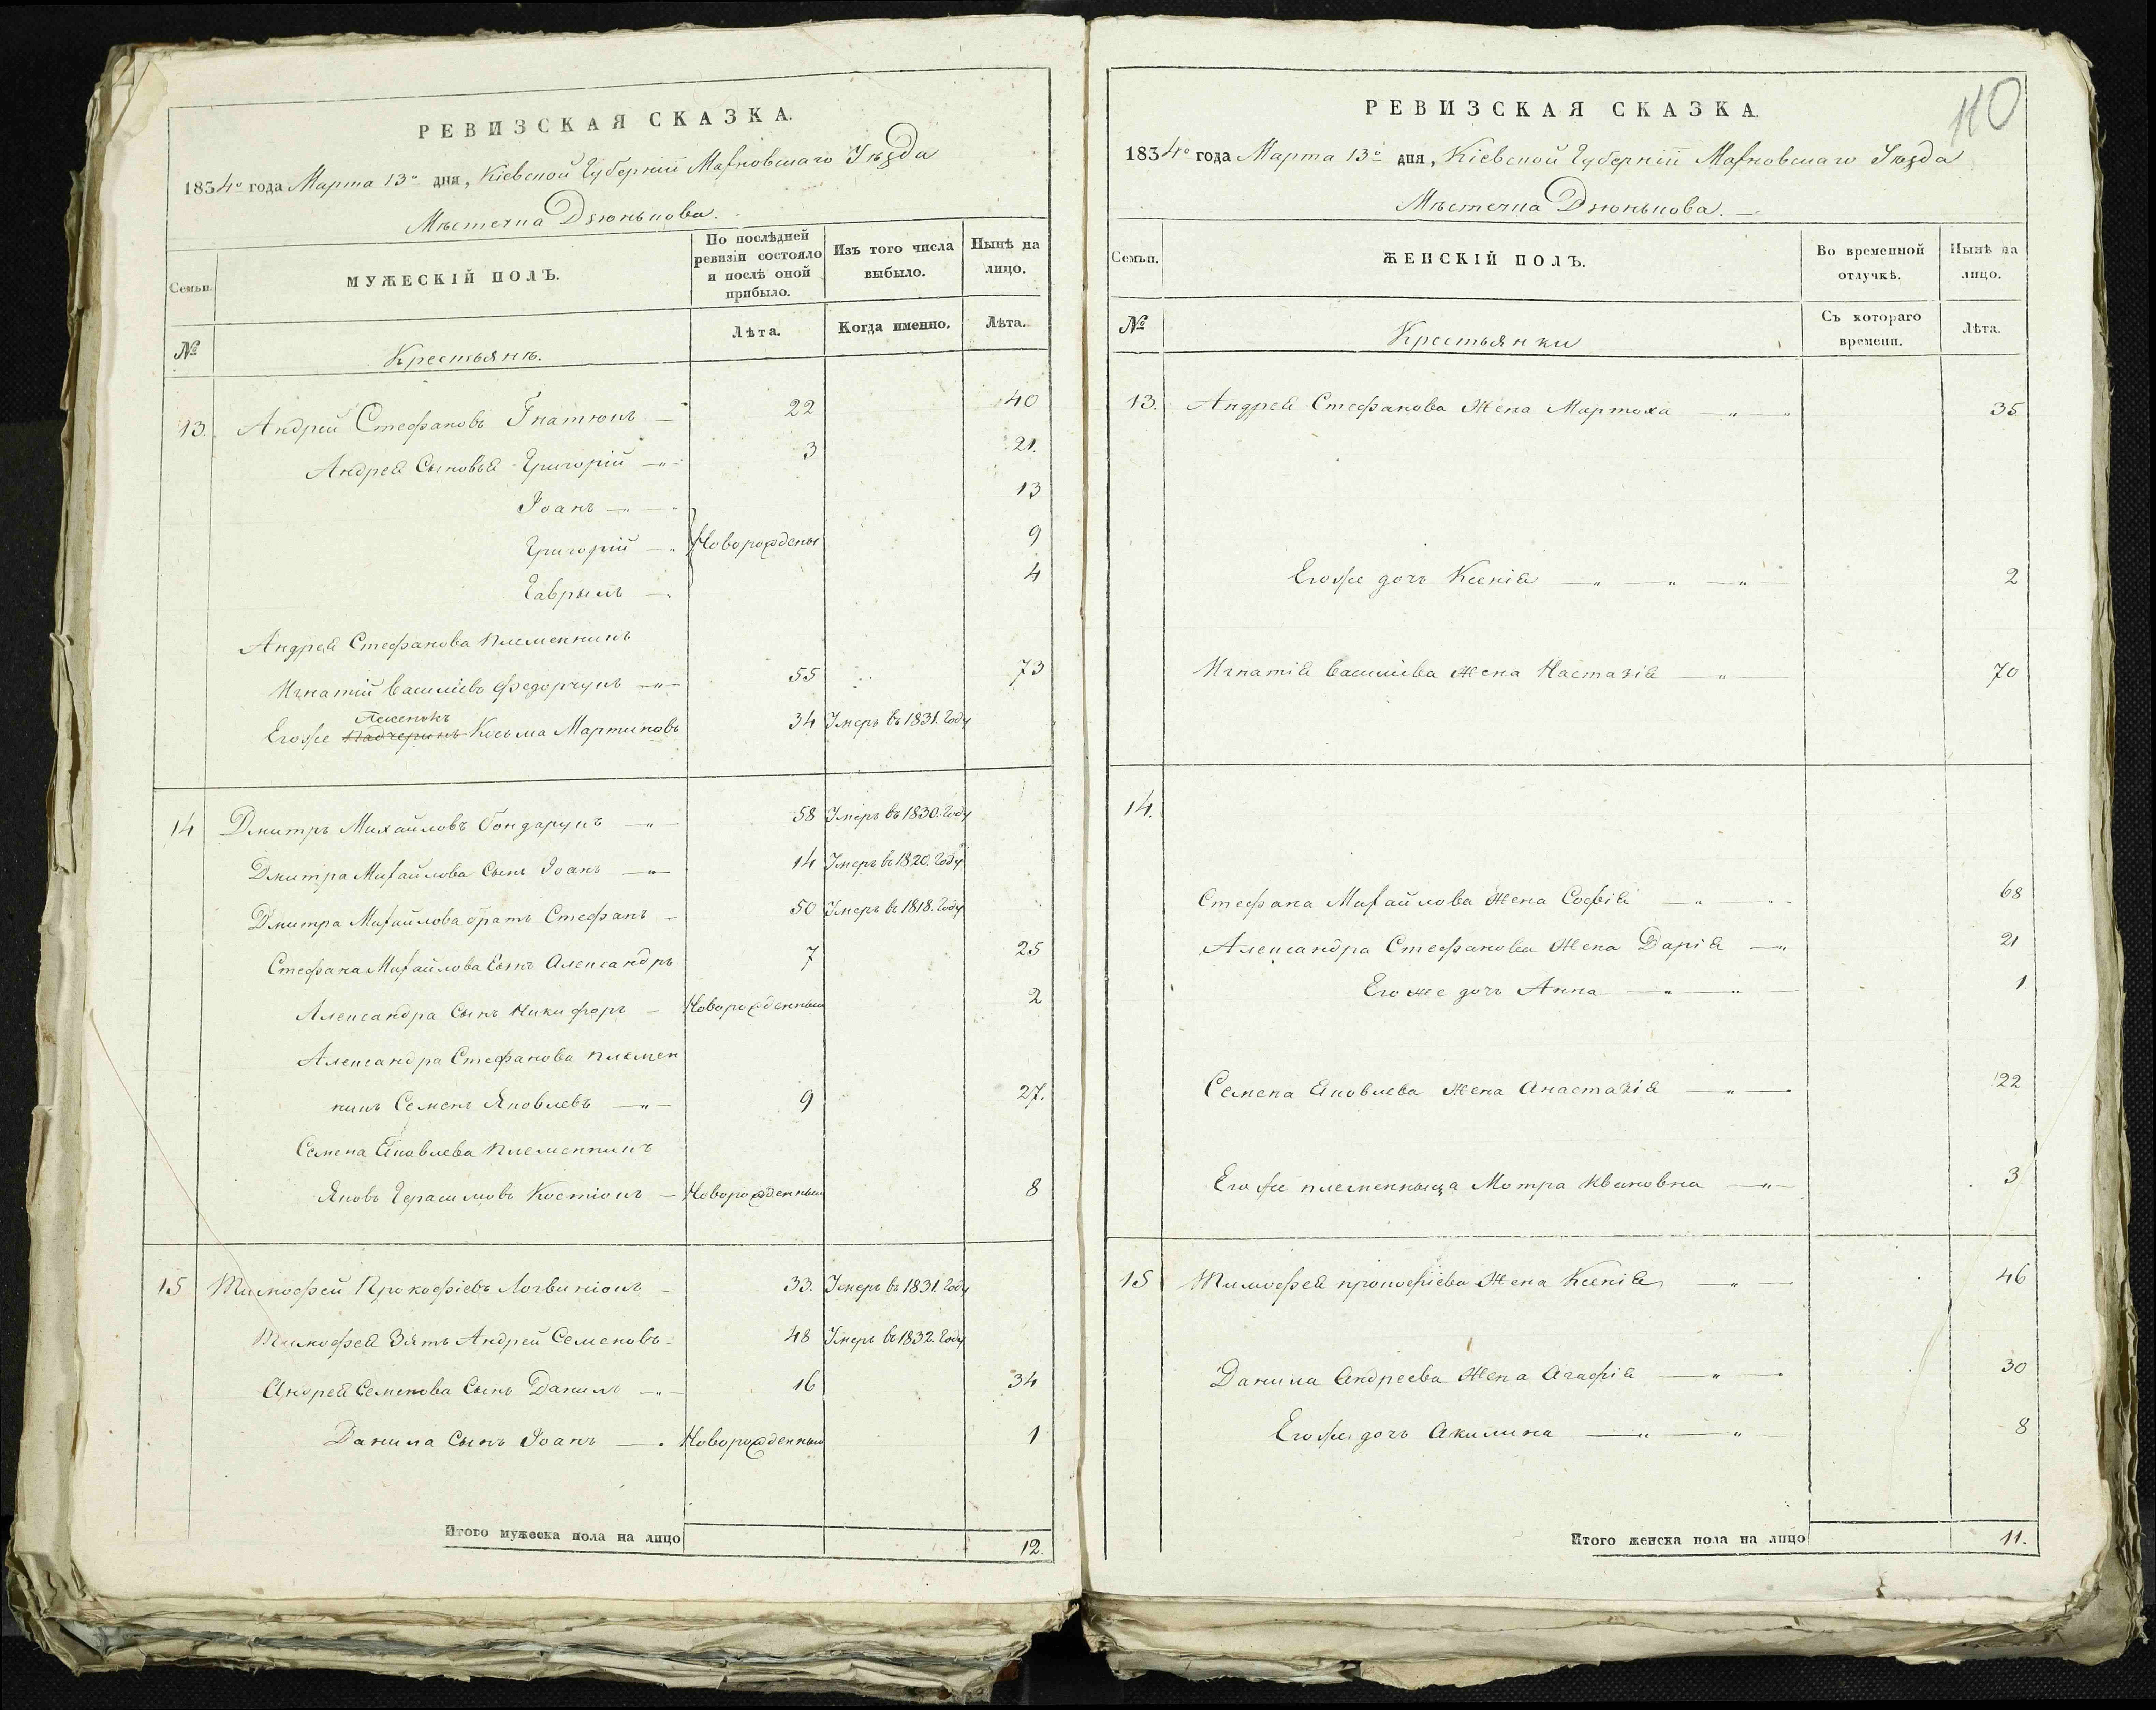 РЕВИЗСКАЯ СКАЗКА.
1834го года Марта 13го дня, Кіевской Губерніи Махновскаго Уѣзда
Мѣстечка Дзюнькова.
Семьи.
МУЖЕСКІЙ ПОЛЪ.
По послѣдней ревизіи состояло и послѣ оной прибыло.
Изъ того числа выбыло.
Нынѣ на лицо.
№
Крестьянѣ.
Лѣта.
Когда именно.
Лѣта.
13. Андрей Стефановъ Гнатюкъ — 22 40
Андрея Сыновья Григорій —"— 3 21.
Іоанъ —"— 13
Григорій —" Новорождены 9
Гаврылъ —" 4
Андрея Стефанова племенникъ
Игнатій Василіевъ Федорчукъ —"— 55 73
Пасенокъ
Егоже Падчерикъ Косьма Мартиновъ 34 Умеръ въ 1831. Году
14 Дмитръ Михайловъ Бондарукъ —"— 58 Умеръ въ 1830. Году
Дмитра Михайлова Сынъ Іоанъ —"— 14 Умеръ въ 1820. Году
Дмитра Михайлова братъ Стефанъ — 50 Умеръ въ 1818. Году
Стефана Михайлова Сынъ Александръ 7 25
Александра Сынъ Никифоръ — Новорожденный 2
Александра Стефанова племен
никъ Семенъ Яковлевъ —"— 9 27.
Семена Яковлева племенникъ
Яковъ Герасимовъ Костюкъ — Новорожденный 8
15 Тимофей Прокофіевъ Логвинюкъ — 33. Умеръ въ 1831. Году
Тимофея Зять Андрей Семеновъ — 48 Умеръ въ 1832. Году
Андрея Семенова Сынъ Данилъ —"— 16 34
Данила Сынъ Іоанъ — . Новорожденный 1
Итого мужеска пола на лицо 12.
110
РЕВИЗСКАЯ СКАЗКА.
1834го года Марта 13го дня, Кіевской Губерніи Махновскаго Уѣзда
Мѣстечка Дзюнькова. —
Семьи.
ЖЕНСКІЙ ПОЛЪ.
Во временной отлучкѣ.
Нынѣ на лицо.
№
Крестьянки
Съ котораго времени.
Лѣта.
13. Андрея Стефанова Жена Мартоха —"—" 35
Егоже дочъ Ксенія —"—"—" 2
Игнатія Василіева Жена Настазія —"— 70
14.
Стефана Михайлова Жена Софія —"— 68
Александра Стефанова Жена Дарія —" 21
Егоже дочъ Анна —"—"— 1
Семена Яковлева Жена Анастазія —"— 22
Егоже племенныца Мотра Ивановна —"— 3
15 Тимофея прокофіева Жена Ксенія —"— 46
Данила Андреева Жена Агафія —"— 30
Егоже дочъ Акилина —"—" 8
Итого женска пола на лицо 11.